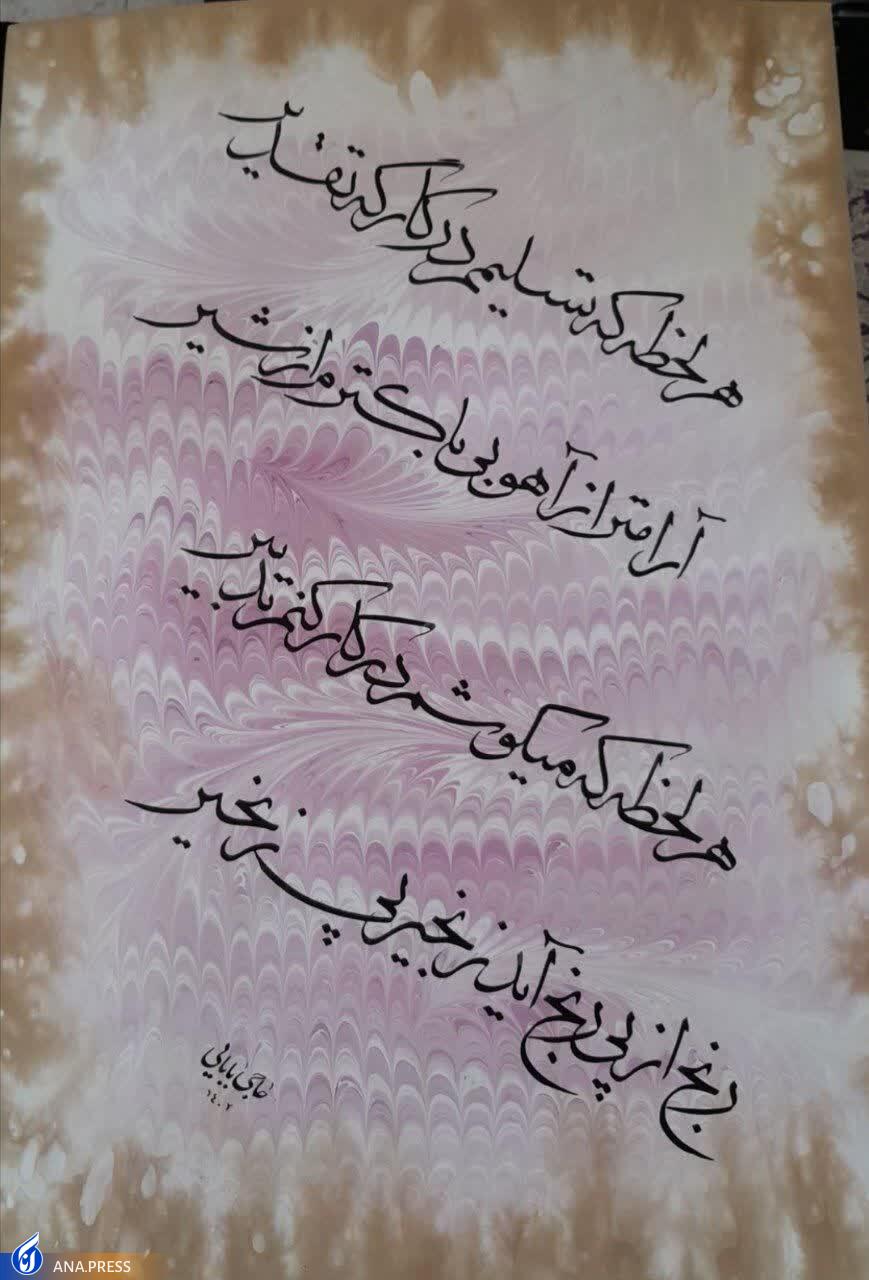 هر لحظه که تسلیمم در کارگه تقدیر
آرامتر از آهو بی باکترم از شیر
هر لحظه که میکوشم در کار کنم تدبیر
رنج از پی رنج آید زنجیر پی زنجیر
حاجی بابایی
۱٤۰۲
ANA.PRESS